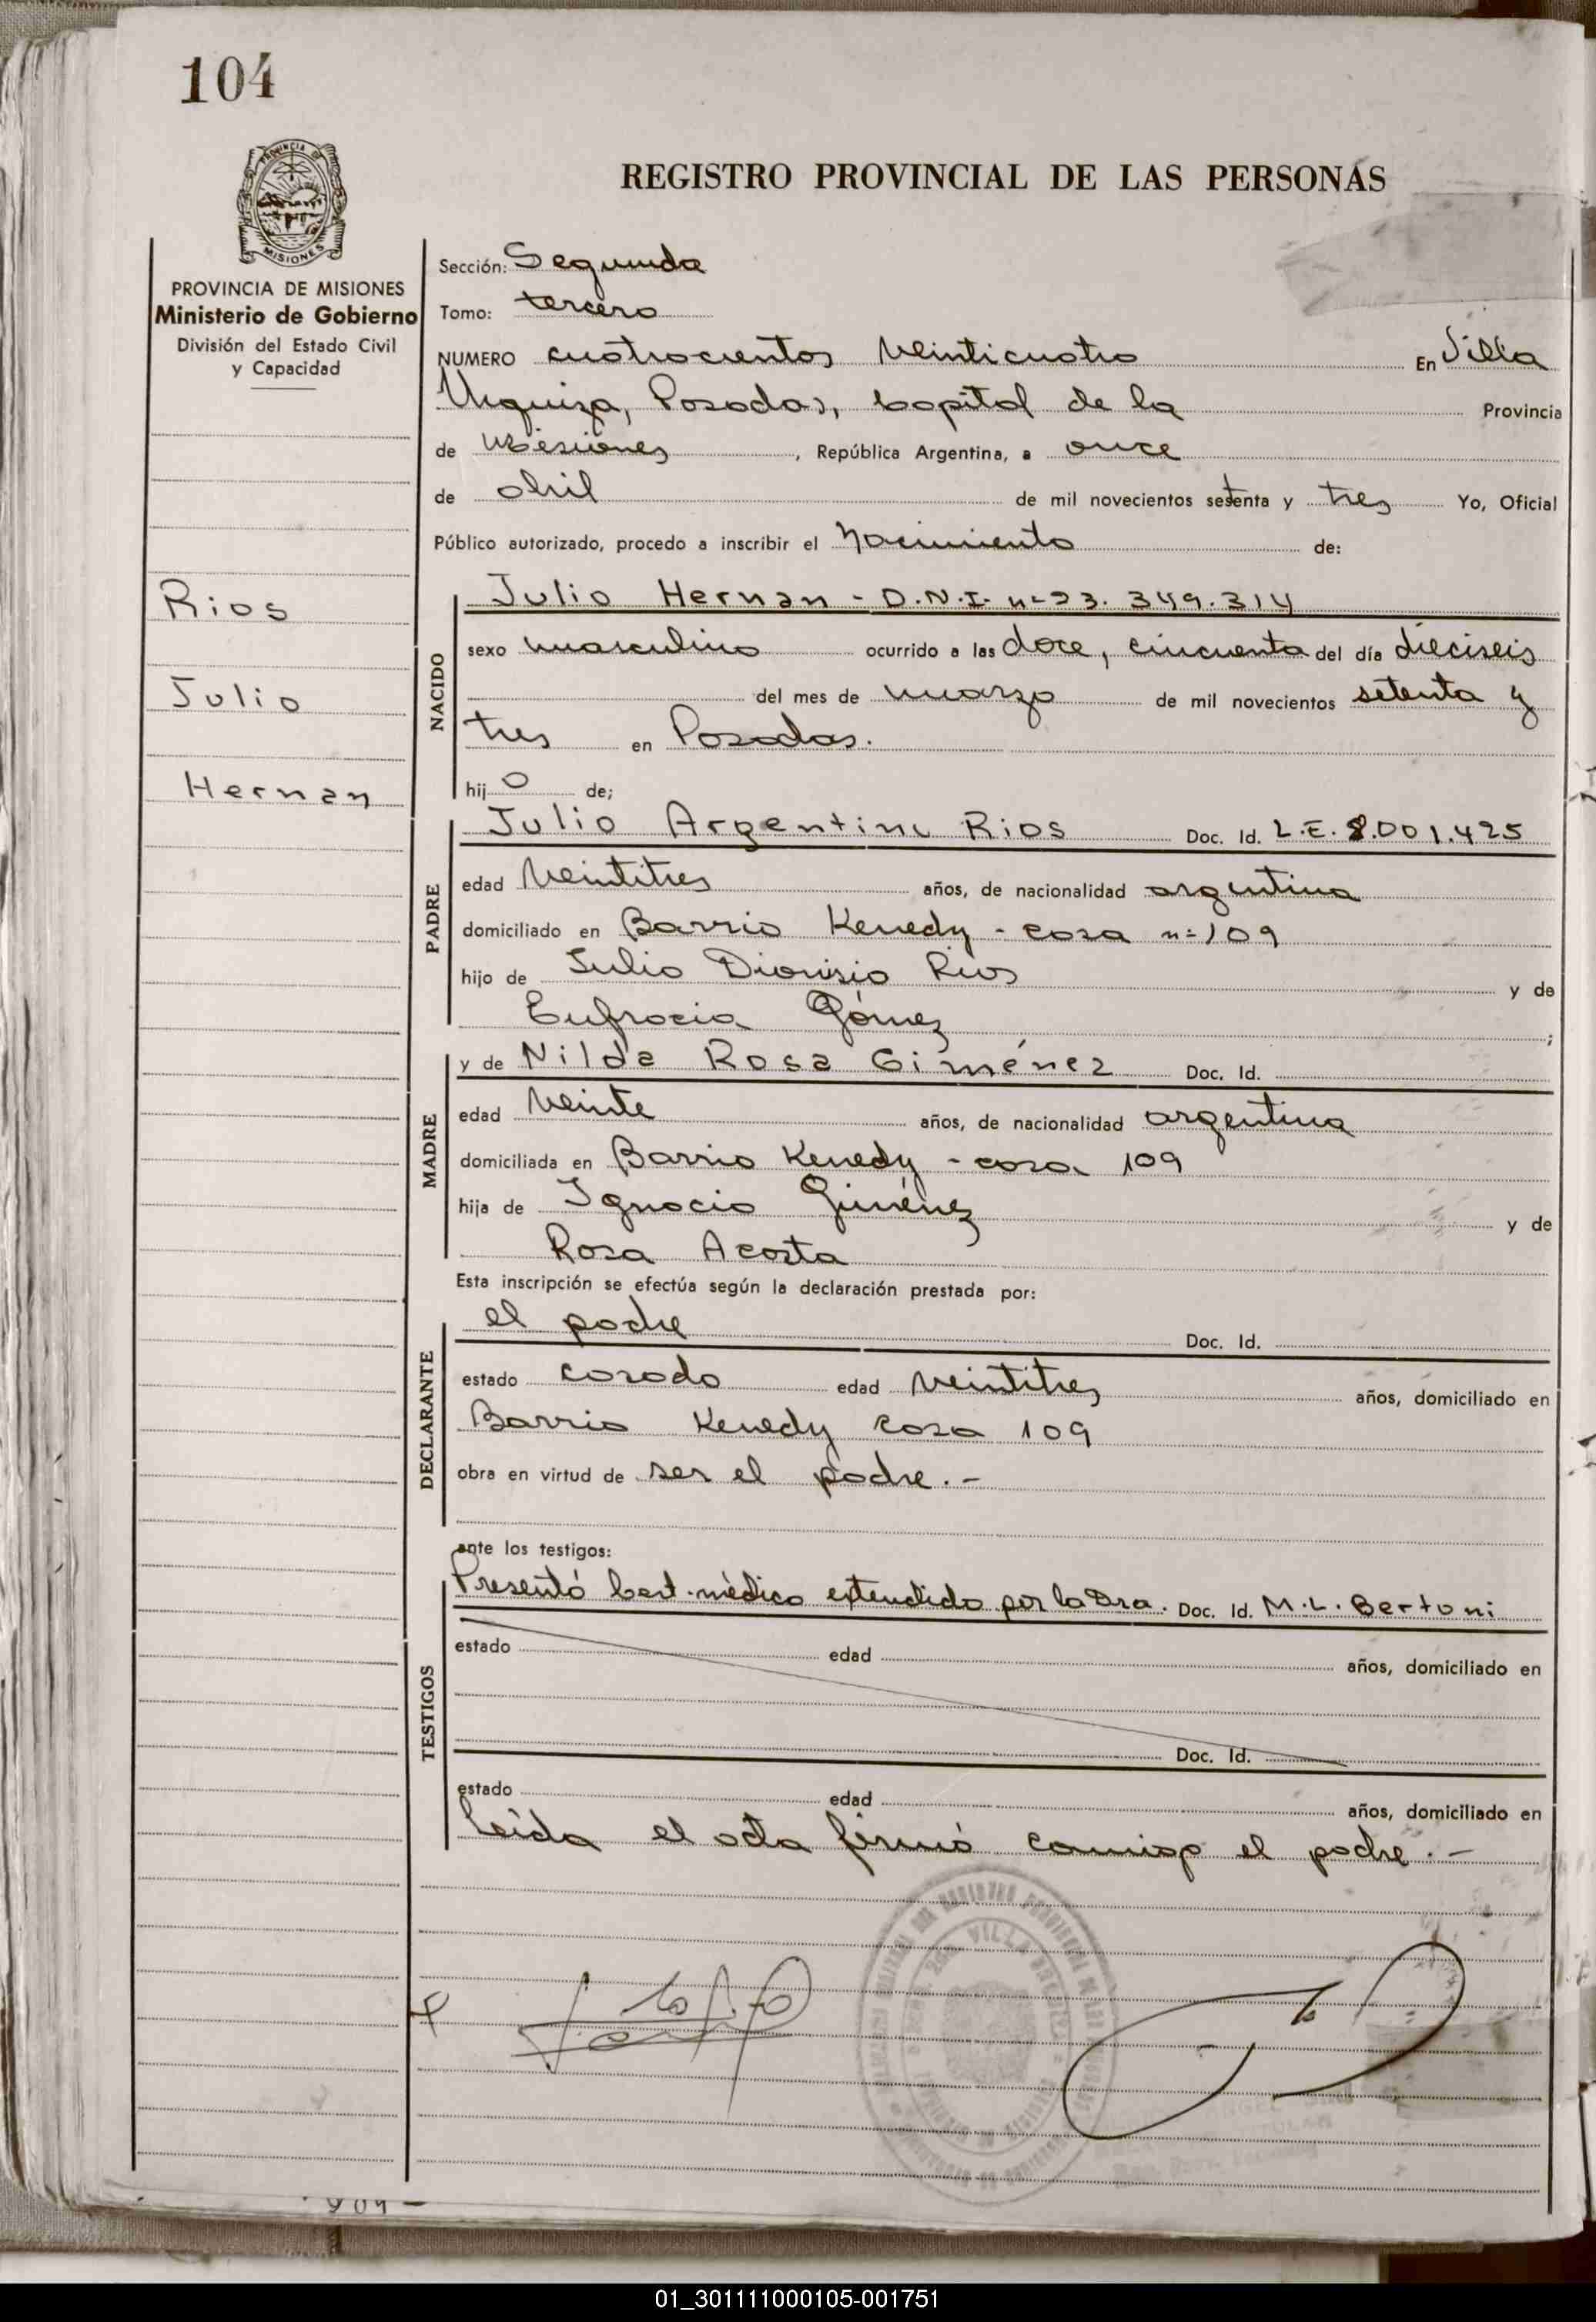 104
PROVINCIA DE
MISIONES
REGISTRO PROVINCIAL DE LAS PERSONAS
PROVINCIA DE MISIONES
Ministerio de Gobierno
División del Estado Civil
y Capacidad
Rios
Julio
Hernan
Sección: Segunda
Tomo: tercero
NUMERO cuatrocientos veinticuatro En Villa
Urquiza, Posadas, Capital de la Provincia
de Misiones, República Argentina, a once
de abril de mil novecientos setenta y tres Yo, Oficial
Público autorizado, procedo a inscribir el Nacimiento de:
NACIDO
Julio Hernan - D.N.I. nº 23.349.314
sexo masculino ocurrido a las doce, cincuenta del día dieciseis
del mes de marzo de mil novecientos setenta y
tres en Posadas.
hijo de;
PADRE
Julio Argentino Rios Doc. Id. L.E. 8.001.425
edad veintitres años, de nacionalidad argentina
domiciliado en Barrio Kenedy - casa nº 109
hijo de Julio Dionisio Rios y de
Eufrocia Gómez ;
MADRE
y de Nilda Rosa Giménez Doc. Id.
edad veinte años, de nacionalidad argentina
domiciliada en Barrio Kenedy - casa 109
hija de Ignacio Giménez y de
Rosa Acosta
Esta inscripción se efectúa según la declaración prestada por:
DECLARANTE
el padre Doc. Id.
estado casado edad veintitres años, domiciliado en
Barrio Kenedy casa 109
obra en virtud de ser el padre.-
ante los testigos:
TESTIGOS
Presentó Cert. médico extendido por la Dra. Doc. Id. M.L. Bertoni
estado edad años, domiciliado en
Doc. Id.
estado edad años, domiciliado en
Leída el acta firmó conmigo el padre.-
01_301111000105-001751